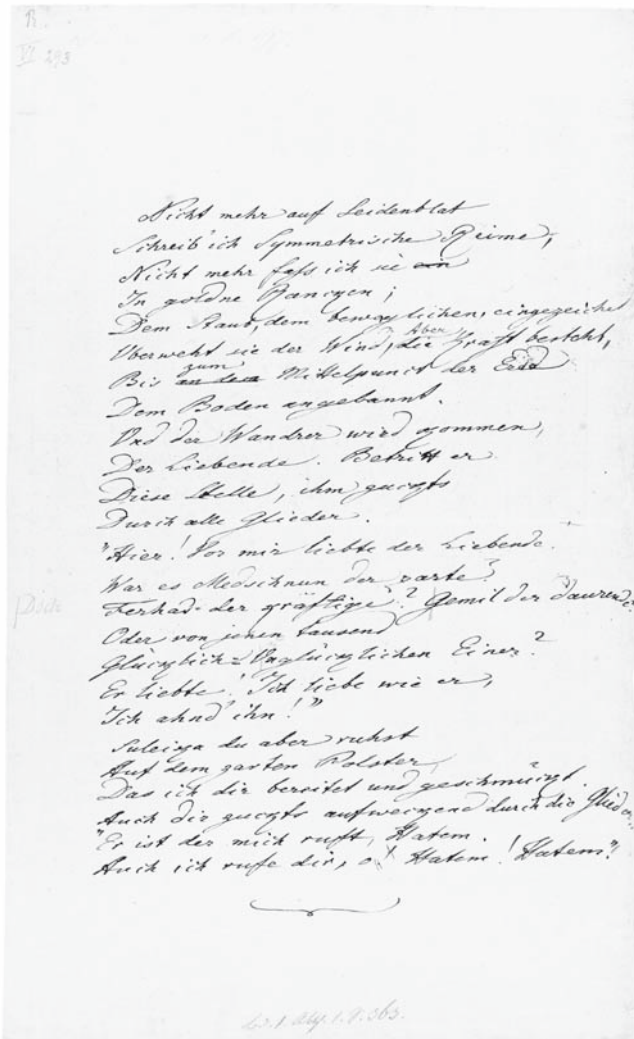 R.
VI 293
Nicht mehr auf Seidenblat
Schreib' ich Symmetrische Reime,
Nicht mehr fass ich sie ein
In goldne Rancken;
Dem Staub, dem beweglichen, eingezeichnet
Uberweht sie der Wind, die Aber Kraft besteht,
Bis an den zum Mittelpunct der Erde
Dem Boden angebannt.
Und der Wandrer wird kommen,
Der Liebende. Betritt er
Diese Stelle, ihm zuckts
Durch alle Glieder.
"Hier! Vor mir liebte der Liebende.
War es Medschnun der zarte?
Ferhad der kräftige? Gemil der daurende?
Oder von jenen tausend
Glücklich=Unglücklichen Einer?
Er liebte! Ich liebe wie er,
Ich ahnd' ihn!"
Suleica du aber ruhst
Auf dem zarten Polster,
Das ich dir bereitet und geschmückt.
Auch dir zuckts aufweckend durch die Glieder.
"Er ist der mich ruft, Hatem.
Auch ich rufe dir, o! Hatem! Hatem"!